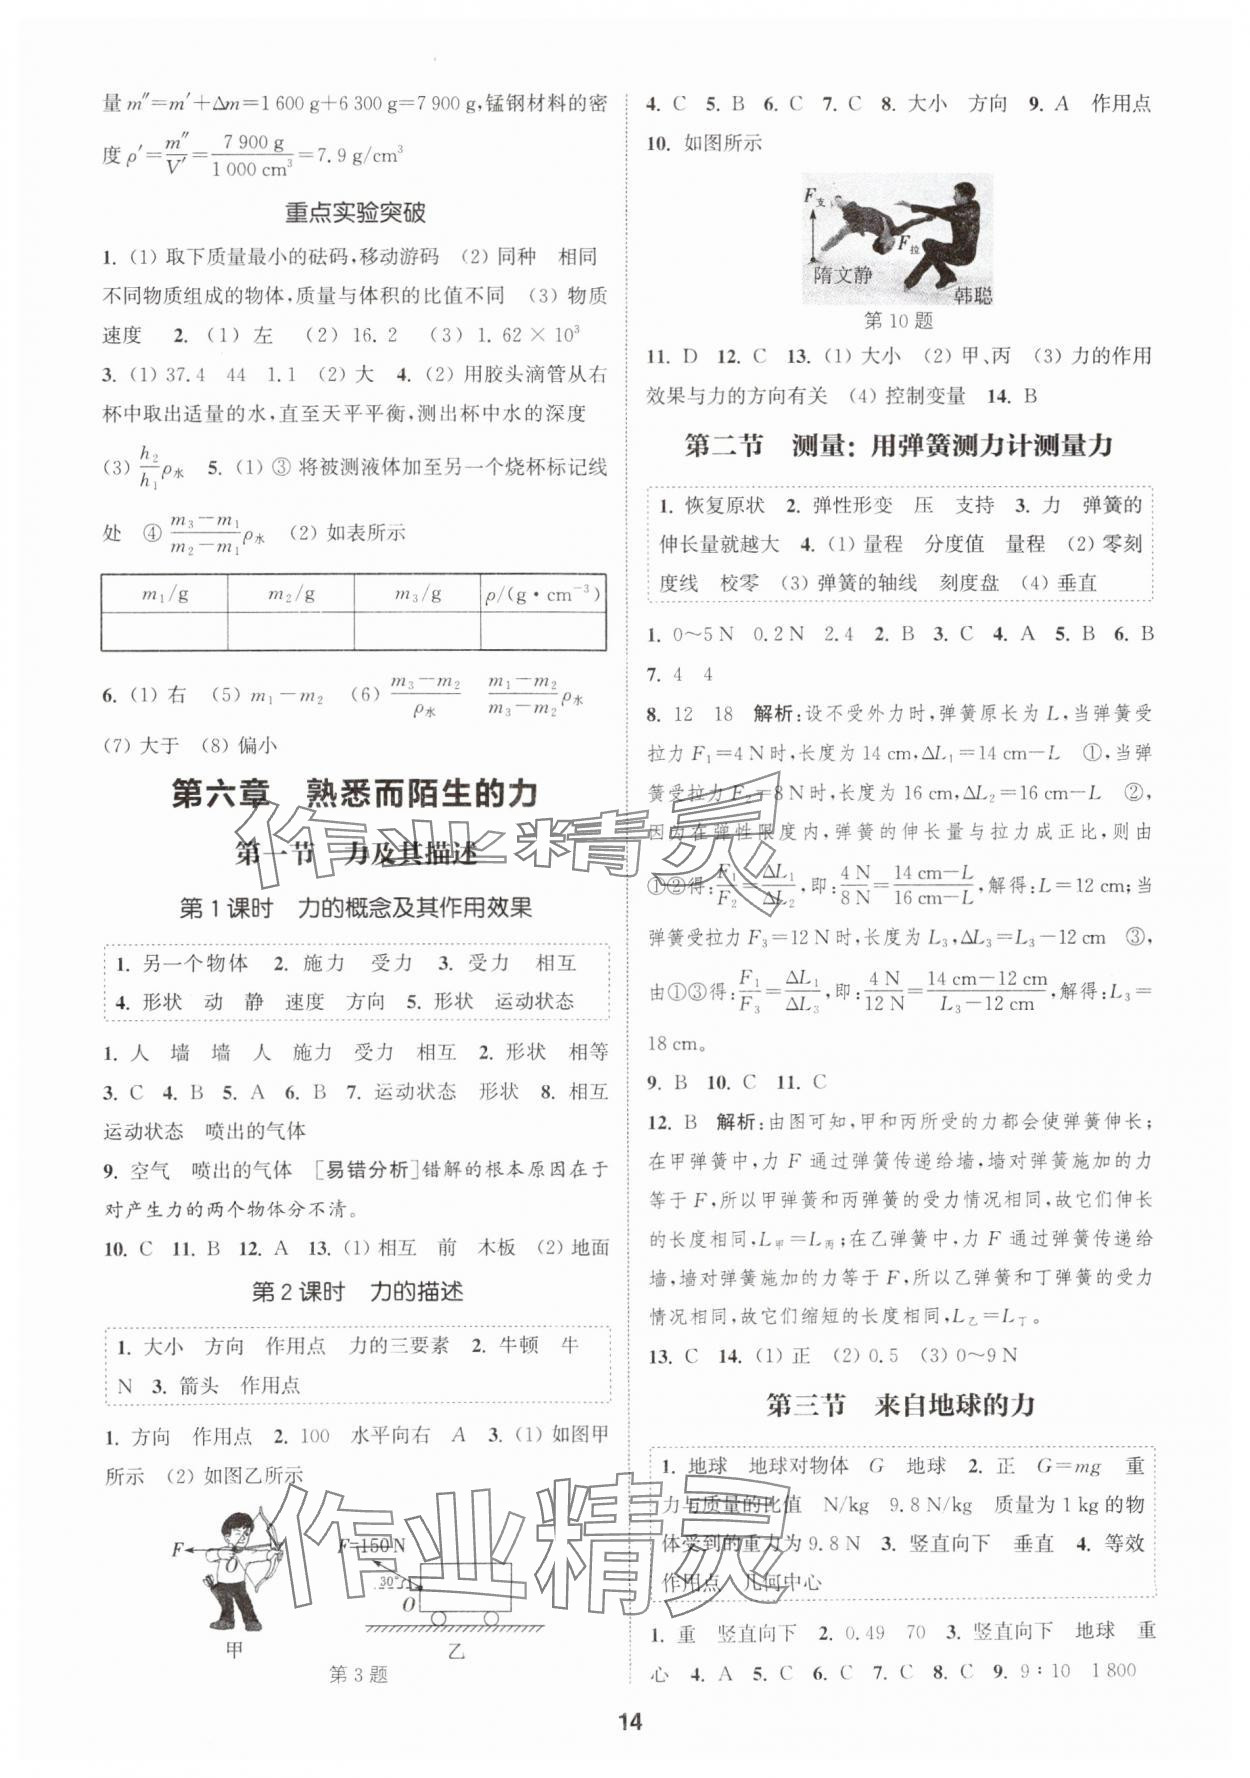 量 m″=m′+Δm=1 600 g+6 300 g=7 900 g,锰钢材料的密
度 ρ′=m″/V′=7 900 g/1 000 cm³=7.9 g/cm³
重点实验突破
1. (1) 取下质量最小的砝码,移动游码 (2) 同种 相同
不同物质组成的物体,质量与体积的比值不同 (3) 物质
速度 2. (1) 左 (2) 16.2 (3) 1.62×10³
3. (1) 37.4 44 1.1 (2) 大 4. (2) 用胶头滴管从右
杯中取出适量的水,直至天平平衡,测出杯中水的深度
(3) h₂/h₁ ρ水 5. (1) ③ 将被测液体加至另一个烧杯标记线
处 ④ (m₃−m₁)/(m₂−m₁) ρ水 (2) 如表所示
m₁/g m₂/g m₃/g ρ/(g·cm⁻³)
6. (1) 右 (5) m₁−m₂ (6) (m₃−m₂)/ρ水 (m₁−m₂)/(m₃−m₂) ρ水
(7) 大于 (8) 偏小
第六章 熟悉而陌生的力
第一节 力及其描述
第1课时 力的概念及其作用效果
1. 另一个物体 2. 施力 受力 3. 受力 相互
4. 形状 动 静 速度 方向 5. 形状 运动状态
1. 人 墙 墙 人 施力 受力 相互 2. 形状 相等
3. C 4. B 5. A 6. B 7. 运动状态 形状 8. 相互
运动状态 喷出的气体
9. 空气 喷出的气体 [易错分析]错解的根本原因在于
对产生力的两个物体分不清。
10. C 11. B 12. A 13. (1) 相互 前 木板 (2) 地面
第2课时 力的描述
1. 大小 方向 作用点 力的三要素 2. 牛顿 牛
N 3. 箭头 作用点
1. 方向 作用点 2. 100 水平向右 A 3. (1) 如图甲
所示 (2) 如图乙所示
F O
甲
F=150 N
30°
O
乙
第3题
4. C 5. B 6. C 7. C 8. 大小 方向 9. A 作用点
10. 如图所示
F支
F拉
隋文静
韩聪
第10题
11. D 12. C 13. (1) 大小 (2) 甲、丙 (3) 力的作用
效果与力的方向有关 (4) 控制变量 14. B
第二节 测量：用弹簧测力计测量力
1. 恢复原状 2. 弹性形变 压 支持 3. 力 弹簧的
伸长量就越大 4. (1) 量程 分度值 量程 (2) 零刻
度线 校零 (3) 弹簧的轴线 刻度盘 (4) 垂直
1. 0～5 N 0.2 N 2.4 2. B 3. C 4. A 5. B 6. B
7. 4 4
8. 12 18 解析:设不受外力时,弹簧原长为 L,当弹簧受
拉力 F₁=4 N 时,长度为 14 cm,ΔL₁=14 cm−L ①,当弹
簧受拉力 F₂=8 N 时,长度为 16 cm,ΔL₂=16 cm−L ②,
因为在弹性限度内,弹簧的伸长量与拉力成正比,则由
①②得:F₁/F₂=ΔL₁/ΔL₂,即:4 N/8 N=(14 cm−L)/(16 cm−L),解得:L=12 cm;当
弹簧受拉力 F₃=12 N 时,长度为 L₃,ΔL₃=L₃−12 cm ③,
由①③得:F₁/F₃=ΔL₁/ΔL₃,即:4 N/12 N=(14 cm−12 cm)/(L₃−12 cm),解得:L₃=
18 cm。
9. B 10. C 11. C
12. B 解析:由图可知,甲和丙所受的力都会使弹簧伸长;
在甲弹簧中,力 F 通过弹簧传递给墙,墙对弹簧施加的力
等于 F,所以甲弹簧和丙弹簧的受力情况相同,故它们伸长
的长度相同,L甲=L丙;在乙弹簧中,力 F 通过弹簧传递给
墙,墙对弹簧施加的力等于 F,所以乙弹簧和丁弹簧的受力
情况相同,故它们缩短的长度相同,L乙=L丁。
13. C 14. (1) 正 (2) 0.5 (3) 0～9 N
第三节 来自地球的力
1. 地球 地球对物体 G 地球 2. 正 G=mg 重
力与质量的比值 N/kg 9.8 N/kg 质量为 1 kg 的物
体受到的重力为 9.8 N 3. 竖直向下 垂直 4. 等效
作用点 几何中心
1. 重 竖直向下 2. 0.49 70 3. 竖直向下 地球 重
心 4. A 5. C 6. C 7. C 8. C 9. 9∶10 1 800
14
作业精灵
作业精灵